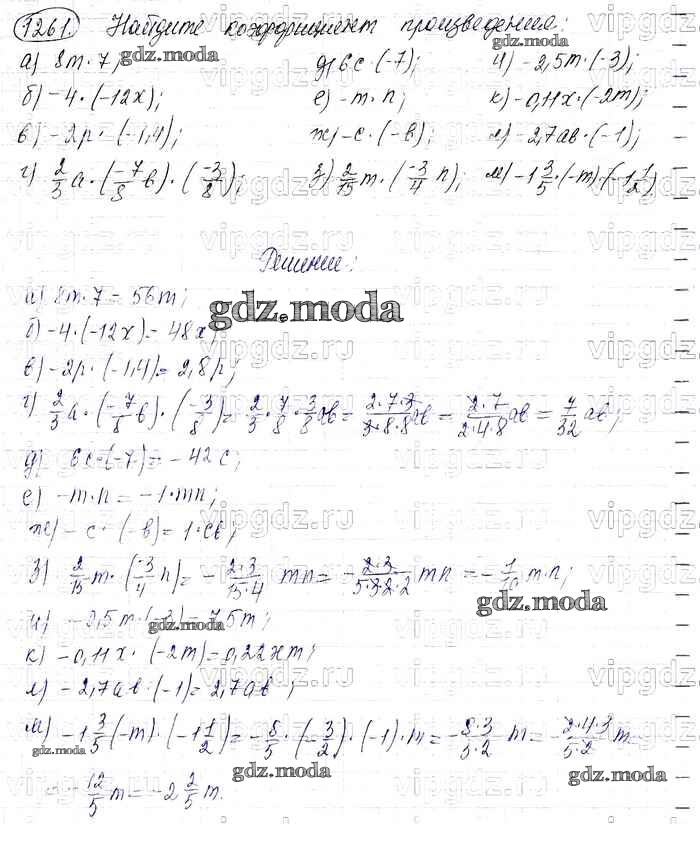 1261. Найдите коэффициент произведения:
а) 8m·7; д) 6c·(-7); и) -2,5m·(-3);
б) -4·(-12x); е) -m·n; к) -0,11x·(-2m);
в) -2p·(-1,4); ж) -c·(-b); л) -2,7ab·(-1);
г) 2/3 a·(-7/8 b)·(-3/8); з) 2/15 m·(-3/4 n); м) -1 3/5·(-m)·(-1 1/2)
Решение:
а) 8m·7 = 56m;
б) -4·(-12x) = 48x;
в) -2p·(-1,4) = 2,8p;
г) 2/3 a·(-7/8 b)·(-3/8) = 2/3·7/8·3/8 ab = 2·7·3/3·8·8 ab = 2·7/2·4·8 ab = 7/32 ab;
д) 6c·(-7) = -42c;
е) -m·n = -1·mn;
ж) -c·(-b) = 1·cb;
з) 2/15 m·(-3/4 n) = -2·3/15·4 mn = -2·3/5·3·2·2 mn = -1/10 m·n;
и) -2,5m·(-3) = 7,5m;
к) -0,11x·(-2m) = 0,22xm;
л) -2,7ab·(-1) = 2,7ab;
м) -1 3/5(-m)·(-1 1/2) = -8/5·(-3/2)·(-1)·m = -8·3/5·2 m = -2·4·3/5·2 m =
= -12/5 m = -2 2/5 m.
gdz.moda
gdz.moda
gdz.moda
gdz.moda
gdz.moda
gdz.moda
gdz.moda
gdz.moda
vipgdz.ru